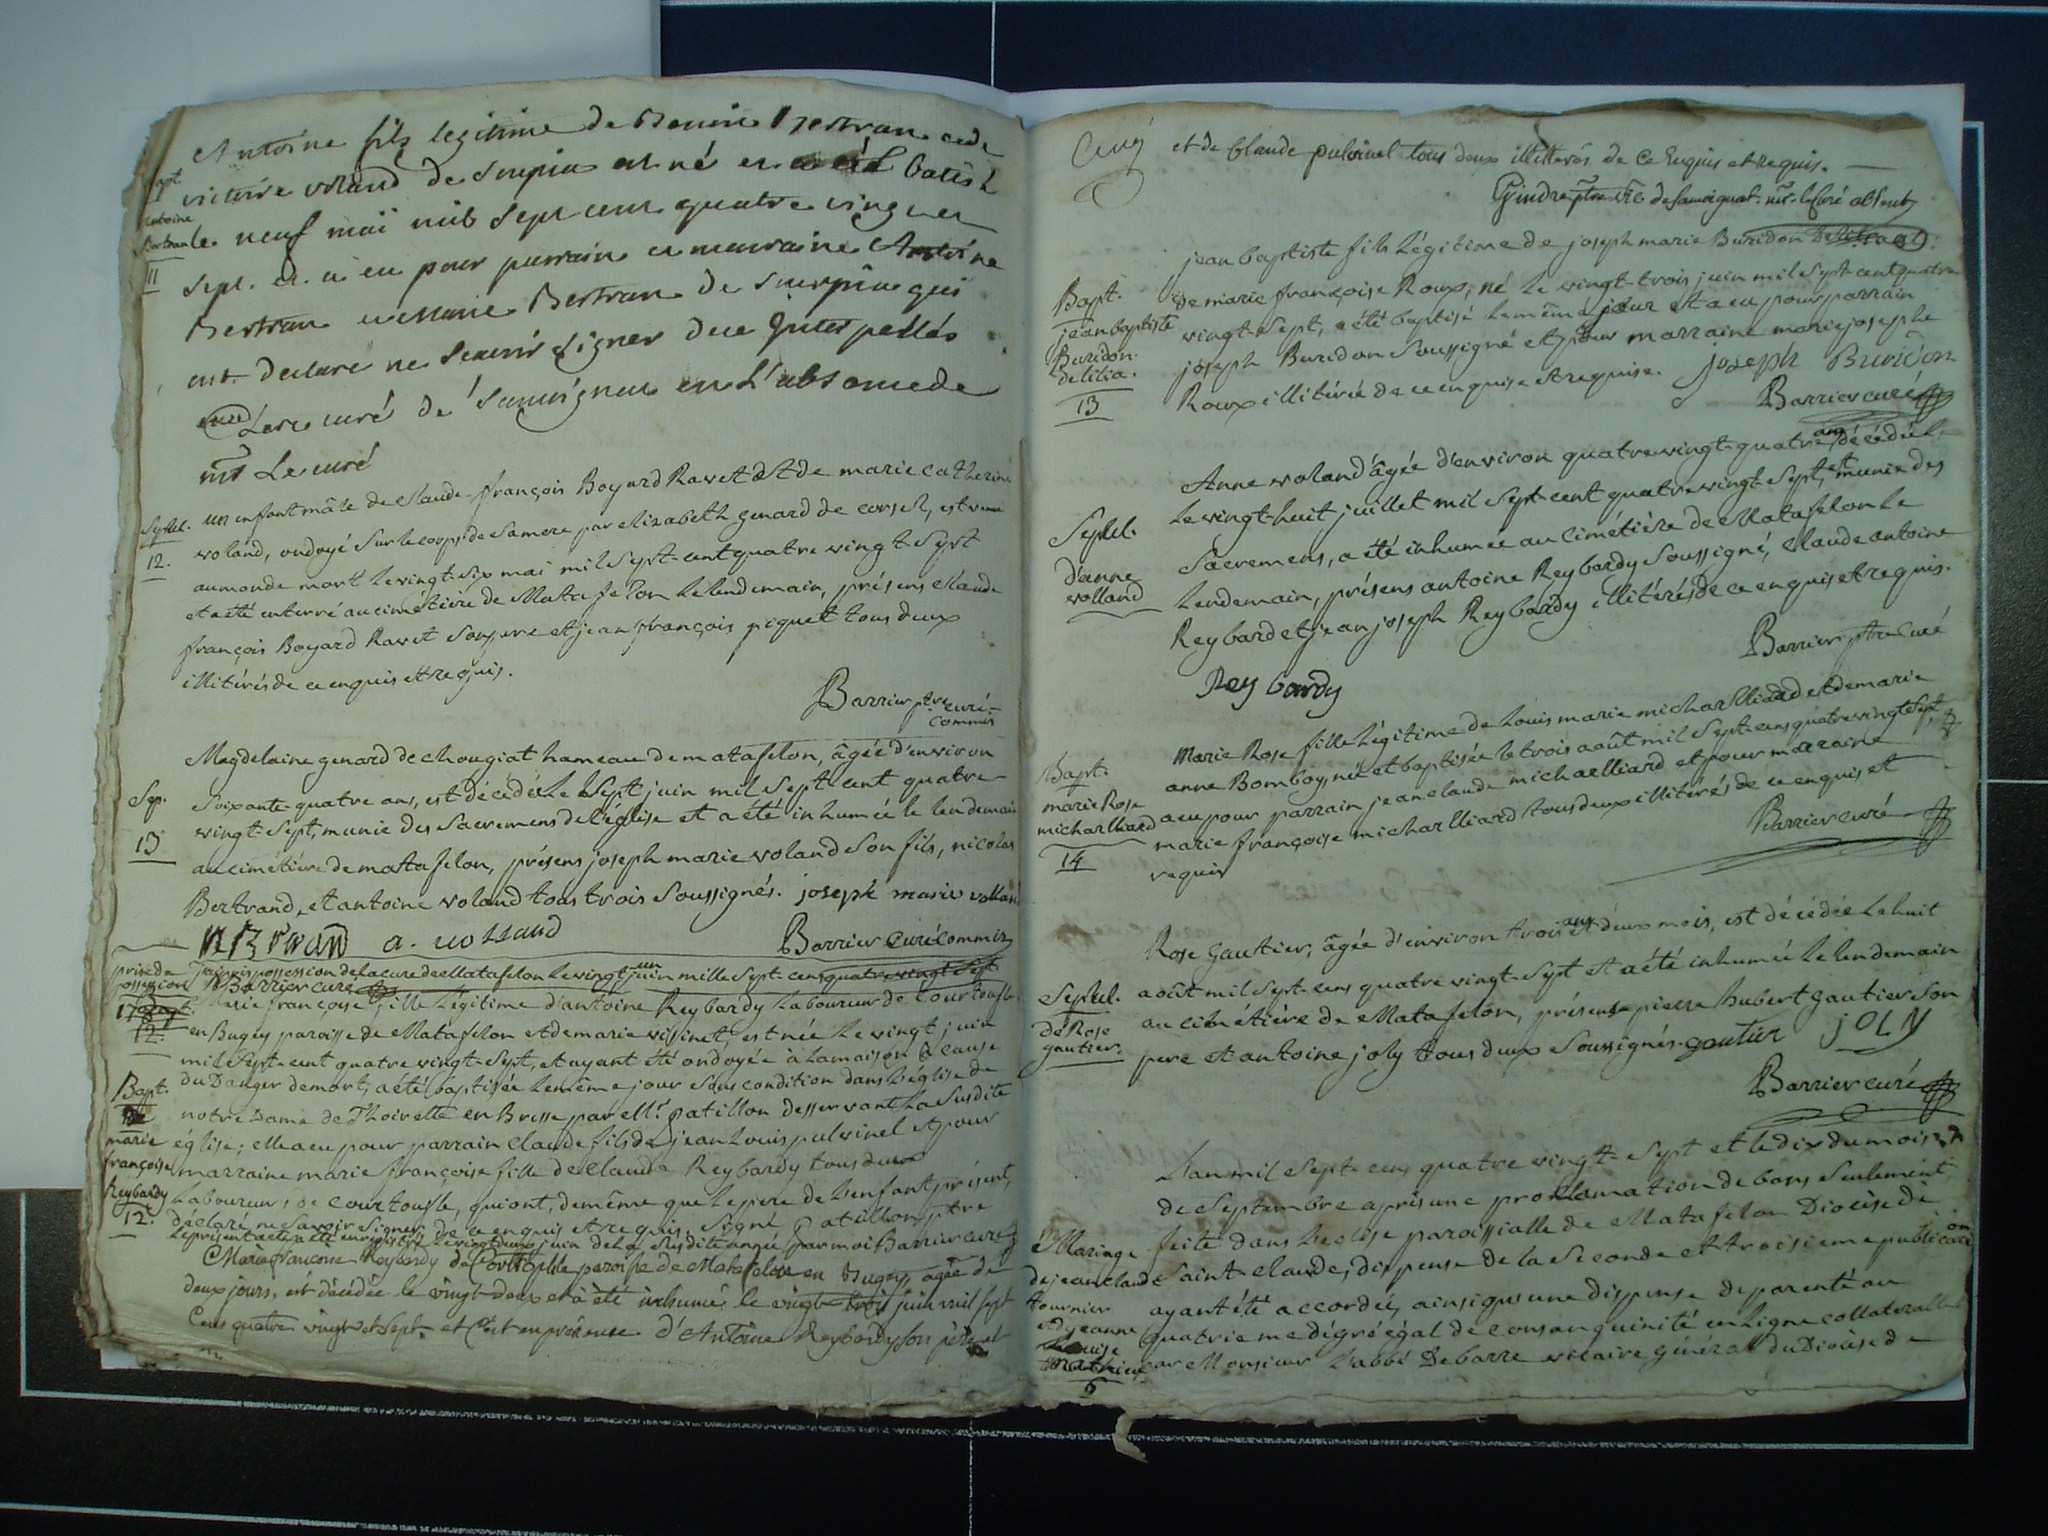 Bapt.
antoine
Bertran
11
Antoine fils legitime de Benoit Bertran et de
victoire voland de Surpin est né et a été batisé
le neuf maï mil sept cent quatre vingt et
sept. et a eu pour parrain et marraine Antoine
Bertran et Marie Bertran de Surpin qui
ont declaré ne scavoir signer de ce Interpellés
curé de Samoignat en L'absence de
mr Le curé
Sepult.
12.
un enfant mâle de claude françois Boyard Ravet et de marie catherine
voland, ondoyé sur le corps de sa mere par elizabeth genard de corsel, est venu
au monde mort le vingt-six mai mil sept-cent quatre vingt-sept
et a été enterré au cimétiere de Matafelon le lendemain, présens claude
françois Boyard Ravet son pere et jean françois piquet tous deux
illitérés de ce enquis et requis.
Barrier ptre curé-
commis
Sep.
13
Magdelaine genard de chougiat hameau de matafelon, âgée d'environ
soixante-quatre ans, est décédée le sept juin mil sept-cent quatre-
vingt-sept, munie des sacremens de l'église et a été inhumée le lendemain
au cimétiere de matafelon, présens joseph marie voland son fils, nicolas
Bertrand, et antoine voland tous trois soussignés. joseph marie volland
a. volland Barrier curé commis
prise de
possession
j'ai pris possession de la cure de Matafelon le vingt-un juin mille sept-cens quatre-vingt-sept
Barrier curé
Bapt.
marie
françoise
Reybardy
12.
Marie françoise fille légitime d'antoine Reybardy laboureur de Courtoufle
en Bugey paroisse de Matafelon et de marie vissinet, est née le vingt juin
mil sept-cent quatre vingt-sept, et ayant été ondoyée à la maison à cause
du danger de mort, a été baptisée le même jour sous condition dans l'église de
notre Dame de Thoirette en Bresse par Mr. patillon desservant la susdite
église; elle a eu pour parrain claude fils de jean louis pulvinel et pour
marraine marie françoise fille de claude Reybardy tous deux
laboureurs de courtoufle, qui ont, de même que le pere de l'enfant présent,
déclaré ne savoir signer de ce enquis et requis. signé patillon ptre
le présent acte a été enregistré le vingt-deux juin de la susdite année par moi Barrier curé
Marie francoise Reybardy de Courtoufle paroisse de Matafelon en Bugey, agée de
deux jours, est décédée le vingt-deux et à été inhumée le vingt-trois juin mil sept
cens quatre vingt et sept et c'est en présence d'Antoine Reybardy son père et
et de Claude pulvinel tous deux illitterés de ce Enquis et requis.
Gindre ptre vic de samoignat. mr. le curé absent
Bapt.
jean baptiste
Buridon.
Delilia.
13
jean baptiste fils légitime de joseph marie Buridon
de marie françoise Roux, né le vingt-trois juin mil sept-cent quatre
vingt-sept, a été baptisé le même jour et a eu pour parrain
joseph Buridon soussigné et pour marraine marie josephe
Roux illitérée de ce enquise et requise. joseph Buridon
Barrier curé
Sepul.
d'anne
volland
Anne voland âgée d'environ quatre vingt-quatre ans, est décédée
le vingt-huit juillet mil sept-cent quatre vingt-sept, munie des
sacremens, a été inhumée au cimétière de Matafelon le
lendemain, présens antoine Reybardy soussigné, claude antoine
Reybard et jean joseph Reybardy illitérés de ce enquis et requis.
Barrier ptre curé
Rey bardy
Bapt.
marie Rose
micharlliard
14
Marie Rose fille légitime de Louis marie micharlliard et de marie
anne Bomboy, née et baptisée le trois août mil sept-cens quatre vingt-sept,
a eu pour parrain jean claude micharlliard et pour marraine
marie françoise micharlliard tous deux illitérés de ce enquis et
requis
Barrier curé
Sepul.
de Rose
gautier.
Rose Gautier, âgée d'environ trois ans et deux mois, est décédée le huit
août mil sept-cens quatre vingt-sept et a été inhumée le lendemain
au cimétière de Matafelon, présens pierre hubert gautier son
pere et antoine joly tous deux soussignés. gautier jOLY
Barrier curé
Mariage
de jean claude
tournier
et jeanne
Louise
mathieu
6
L'an mil sept-cens quatre vingt-sept et le dix du mois
de septembre après une proklamation de bans seulement
faite dans l'église paroissialle de Matafelon Diocèse de
saint-claude, dispense de la seconde et troisieme publication
ayant été accordée, ainsi qu'une dispense de parenté au
quatrieme dégré égal de consanguinité en ligne collateralle
par Monsieur l'abbé Debarre vicaire général du Diocèse de